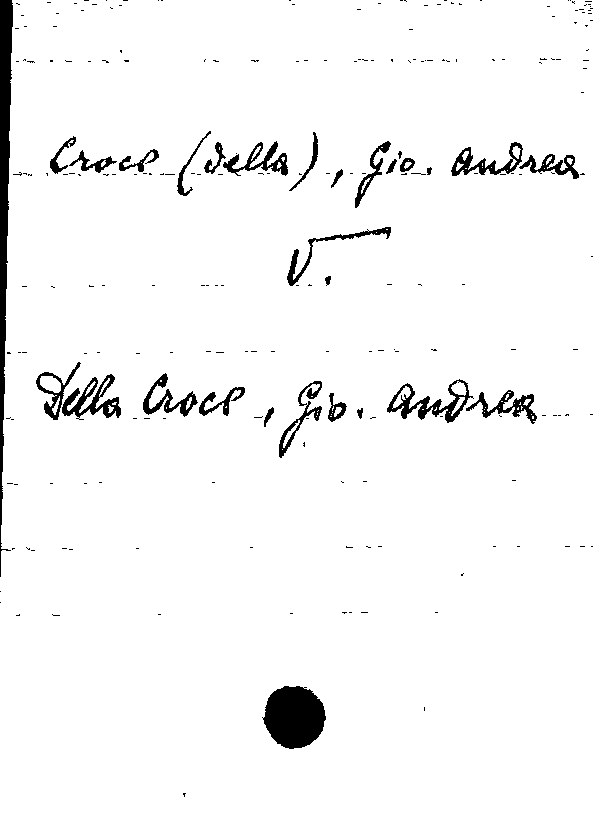 Croce (della), Gio. Andrea
V.
Della Croce, Gio. Andrea